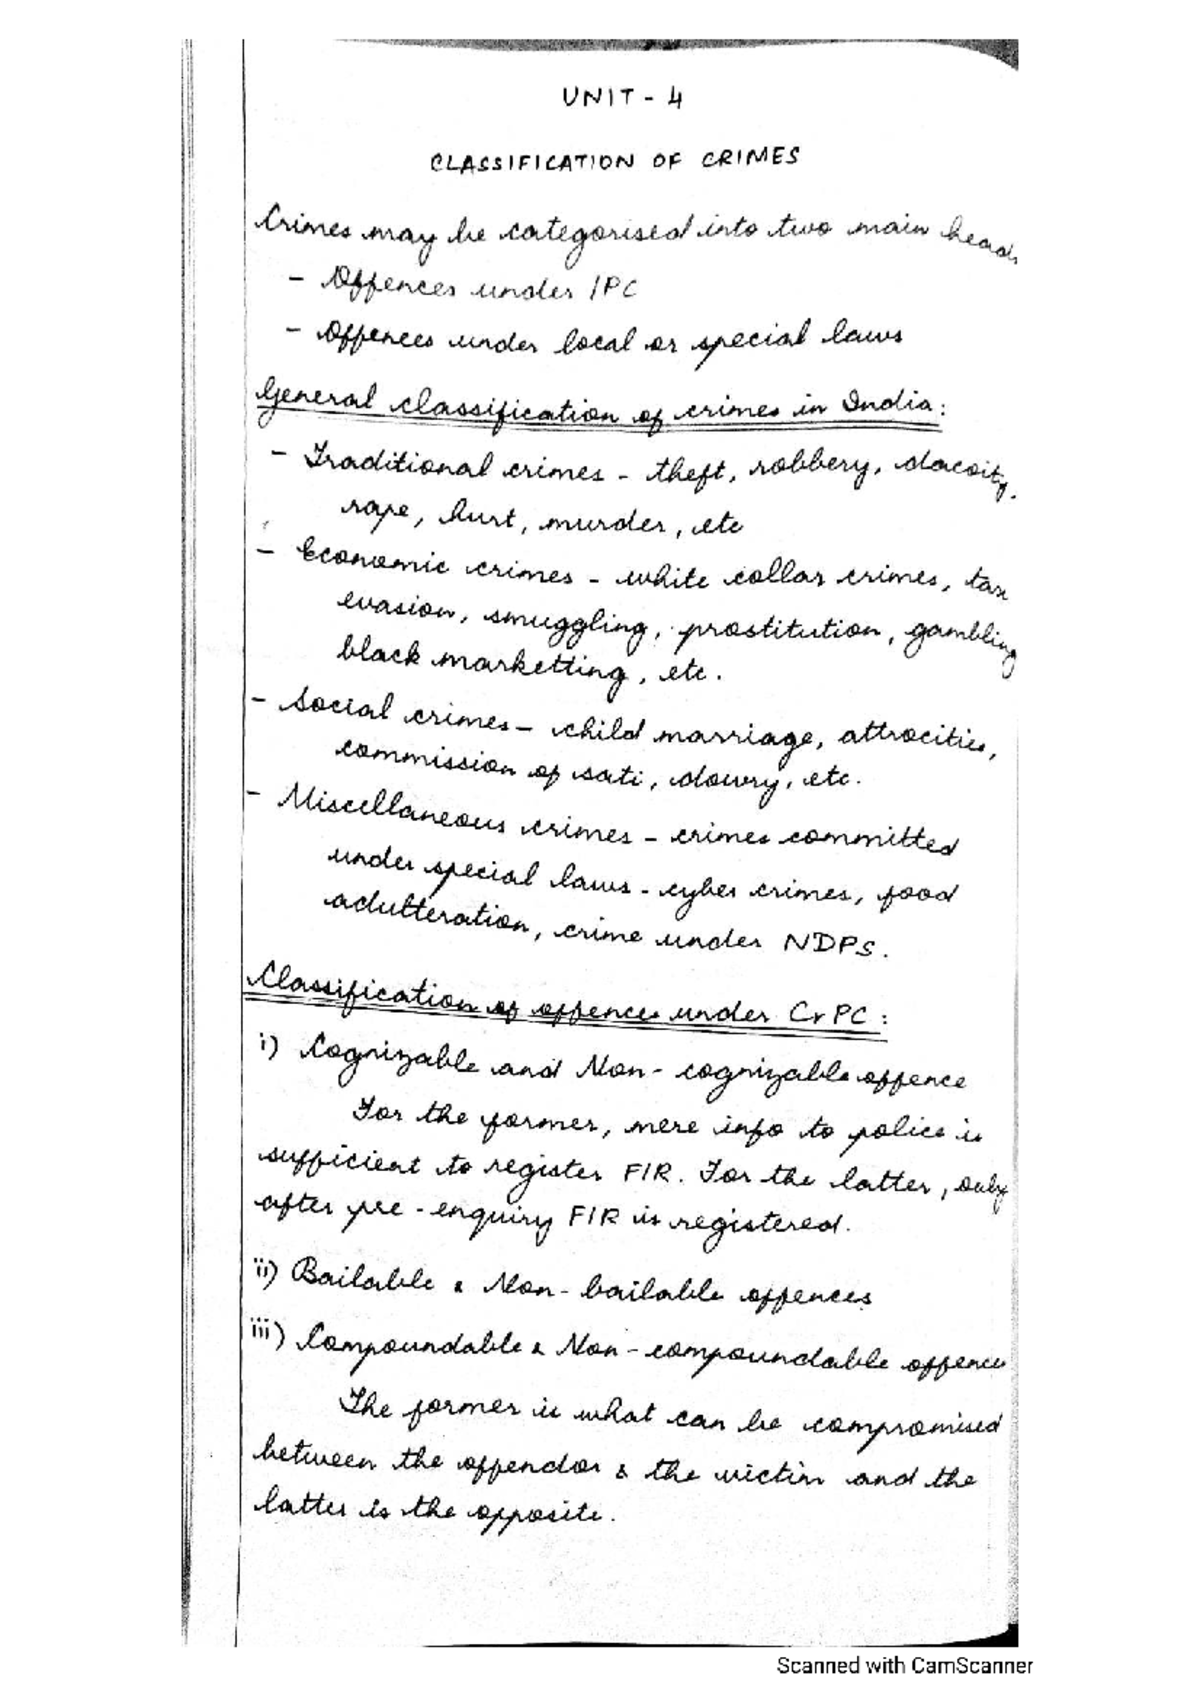 UNIT - 4
CLASSIFICATION OF CRIMES
Crimes may be categorised into two main heads
- Offences under IPC
- Offences under local or special laws
General classification of crimes in India:
- Traditional crimes - theft, robbery, dacoity,
rape, hurt, murder, etc
- Economic crimes - white collar crimes, tax
evasion, smuggling, prostitution, gambling
black marketting, etc.
- Social crimes - child marriage, attrocities,
commission of sati, dowry, etc.
- Miscellaneous crimes - crimes committed
under special laws - cyber crimes, food
adulteration, crime under NDPS.
Classification of offences under CrPC:
i) Cognizable and Non-cognizable offence
For the former, mere info to police is
sufficient to register FIR. For the latter, only
after pre-enquiry FIR is registered.
ii) Bailable & Non-bailable offences
iii) Compoundable & Non-compoundable offences
The former is what can be compromised
between the offendor & the victim and the
latter is the opposite.
Scanned with CamScanner